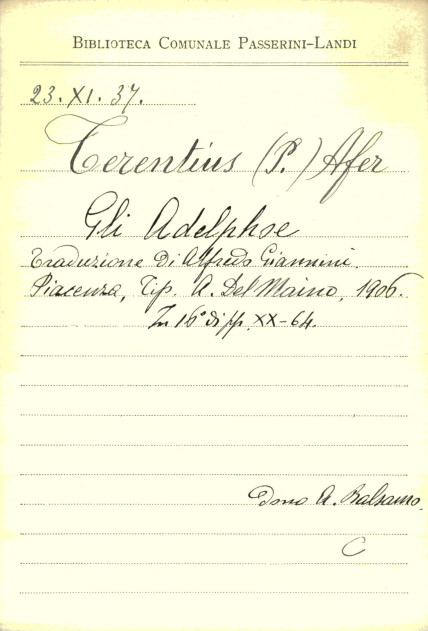 BIBLIOTECA COMUNALE PASSERINI-LANDI
23. XI. 37.
Terentius (P.) Afer
Gli Adelphoe
Traduzione di Alfredo Giannini.
Piacenza, Tip. A. Del Maino, 1906.
In 16° di pp. XX-64.
Dono A. Balsamo.
C